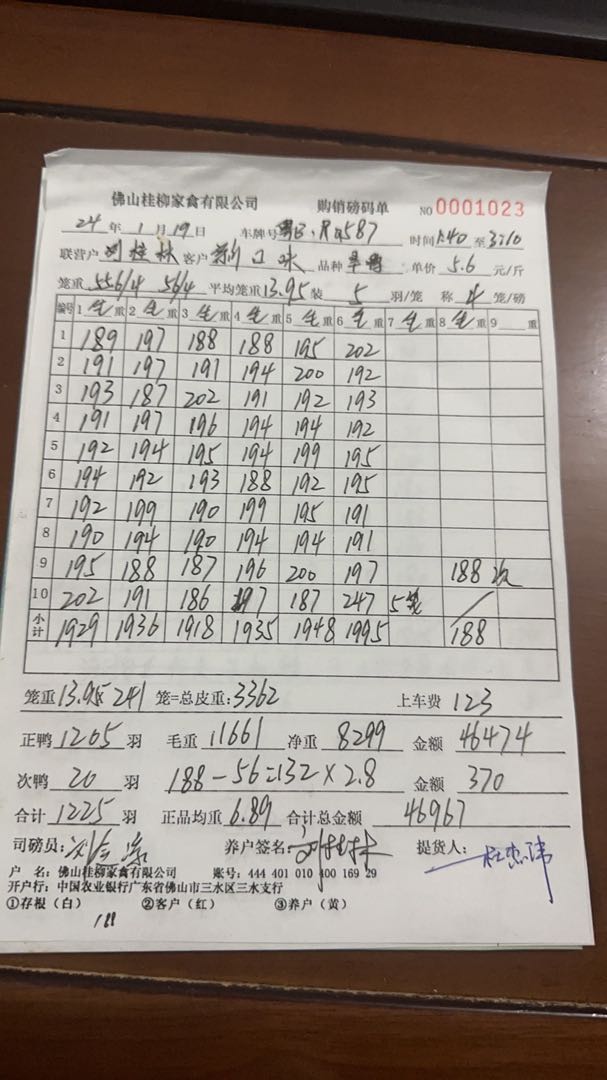 佛山桂柳家禽有限公司 购销磅码单 NO 0001023
24 年 1 月 19 日 车牌号 587 时间 1:40 至 3:10
联营户 刘桂林 客户 新口味 品种 单价 5.6 元/斤
笼重 556/4 56/4 平均笼重 13.95 装 5 羽/笼 称 4 笼/磅
编号 1 毛 重 2 毛 重 3 毛 重 4 毛 重 5 毛 重 6 毛 重 7 毛 重 8 毛 重 9 重
1 189 197 188 188 195 202
2 191 197 191 194 200 192
3 193 187 202 191 192 193
4 191 197 196 194 194 192
5 192 194 195 194 199 195
6 194 192 193 188 192 195
7 192 199 190 199 195 191
8 190 194 190 194 194 191
9 195 188 187 196 200 197 188 次
10 202 191 186 197 187 247 5笼
小计 1929 1936 1918 1935 1948 1995 188
笼重 13.95 241 笼=总皮重: 3362 上车费 123
正鸭 1205 羽 毛重 11661 净重 8299 金额 46474
次鸭 20 羽 188-56=132×2.8 金额 370
合计 1225 羽 正品均重 6.89 合计总金额 46967
司磅员: 养户签名: 刘桂林 提货人:
户 名: 佛山桂柳家禽有限公司 账号: 444 401 010 400 169 29
开户行: 中国农业银行广东省佛山市三水区三水支行
①存根（白） ②客户（红） ③养户（黄）
188